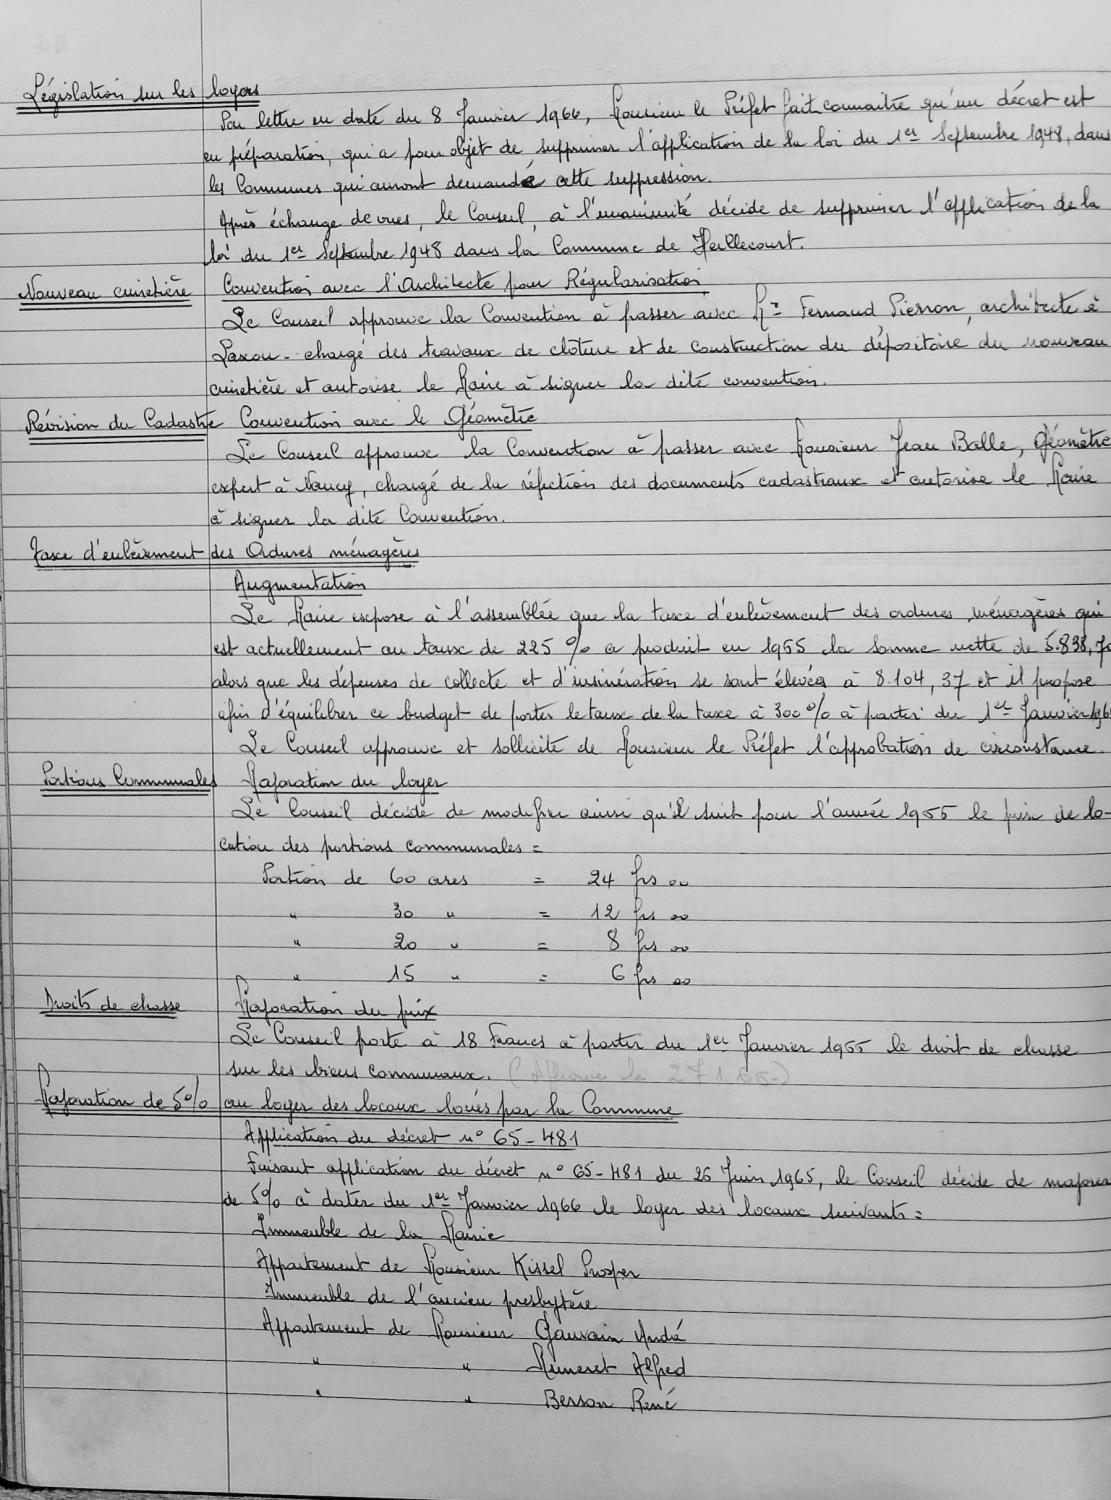 Législation sur les loyers
Par lettre en date du 8 Janvier 1966, Monsieur le Préfet fait connaitre qu'un décret est
en préparation, qui a pour objet de supprimer l'application de la loi du 1er Septembre 1948, dans
les Communes qui auront demandé cette suppression.
Après échange de vues, le Conseil, à l'unanimité décide de supprimer l'application de la
loi du 1er Septembre 1948 dans la Commune de Heillecourt.
Nouveau cimetière Convention avec l'Architecte pour Régularisation
Le Conseil approuve la Convention à passer avec Mr Fernand Pierron, architecte à
Laxou - chargé des travaux de clôture et de construction du dépositoire du nouveau
cimetière et autorise le Maire à signer la dite convention.
Révision du Cadastre Convention avec le Géomètre
Le Conseil approuve la Convention à passer avec Monsieur Jean Balle, Géomètre
expert à Nancy, chargé de la réfection des documents cadastraux et autorise le Maire
à signer la dite Convention.
Taxe d'enlèvement des Ordures ménagères
Augmentation
Le Maire expose à l'assemblée que la taxe d'enlèvement des ordures ménagères qui
est actuellement au taux de 225 % a produit en 1965 la somme nette de 5.838,
alors que les dépenses de collecte et d'incinération se sont élevées à 8.104,37 et il propose
afin d'équilibrer ce budget de porter le taux de la taxe à 300 % à partir du 1er Janvier 196
Le Conseil approuve et sollicite de Monsieur le Préfet l'approbation de circonstance.
Portions Communales Majoration du loyer
Le Conseil décide de modifier ainsi qu'il suit pour l'année 1966 le prix de lo-
cation des portions communales =
Portion de 60 ares = 24 frs 00
" 30 " = 12 frs 00
" 20 " = 8 frs 00
" 15 " = 6 frs 00
Droits de chasse Majoration du prix
Le Conseil porte à 18 Francs à partir du 1er Janvier 1966 le droit de chasse
sur les biens communaux. (Approuvé le 27.1.66-)
Majoration de 5% au loyer des locaux loués par la Commune
Application du décret n° 65-481
Faisant application du décret n° 65-481 du 26 Juin 1965, le Conseil décide de majorer
de 5% à dater du 1er Janvier 1966 le loyer des locaux suivants =
Immeuble de la Mairie
Appartement de Monsieur Kissel Prosper
Immeuble de l'ancien presbytère
Appartement de Monsieur Gauvain André
" " Muneret Alfred
" " Besson René